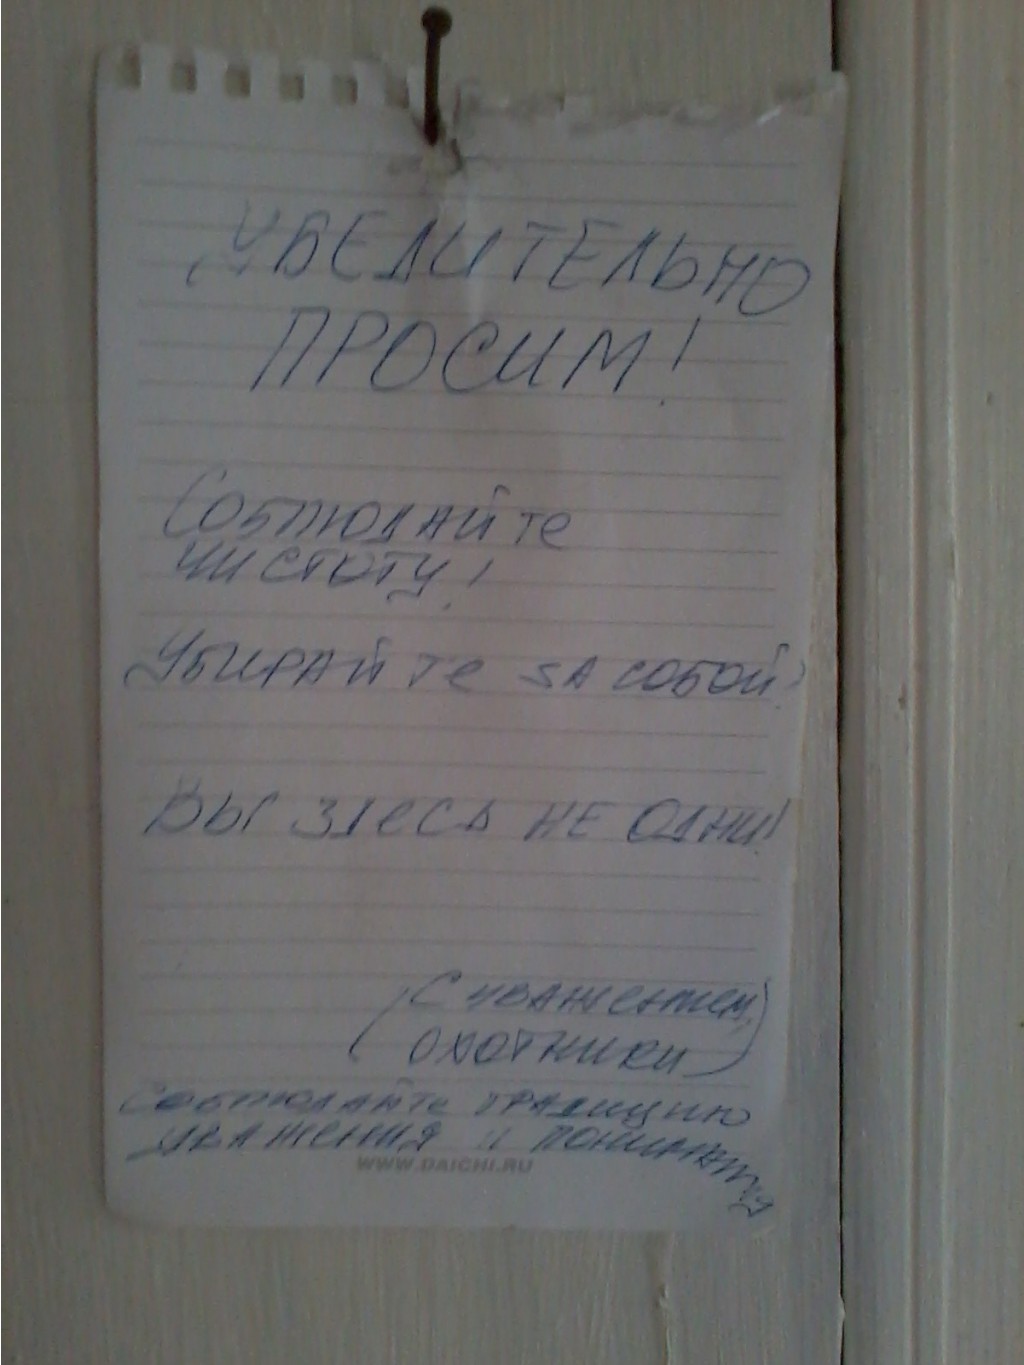 УБЕДИТЕЛЬНО
ПРОСИМ!
Соблюдайте
чистоту!
Убирайте за собой!
Вы здесь не одни!
(С уважением,
охотники)
Соблюдайте традицию
уважения и понимания
WWW.DAICHI.RU